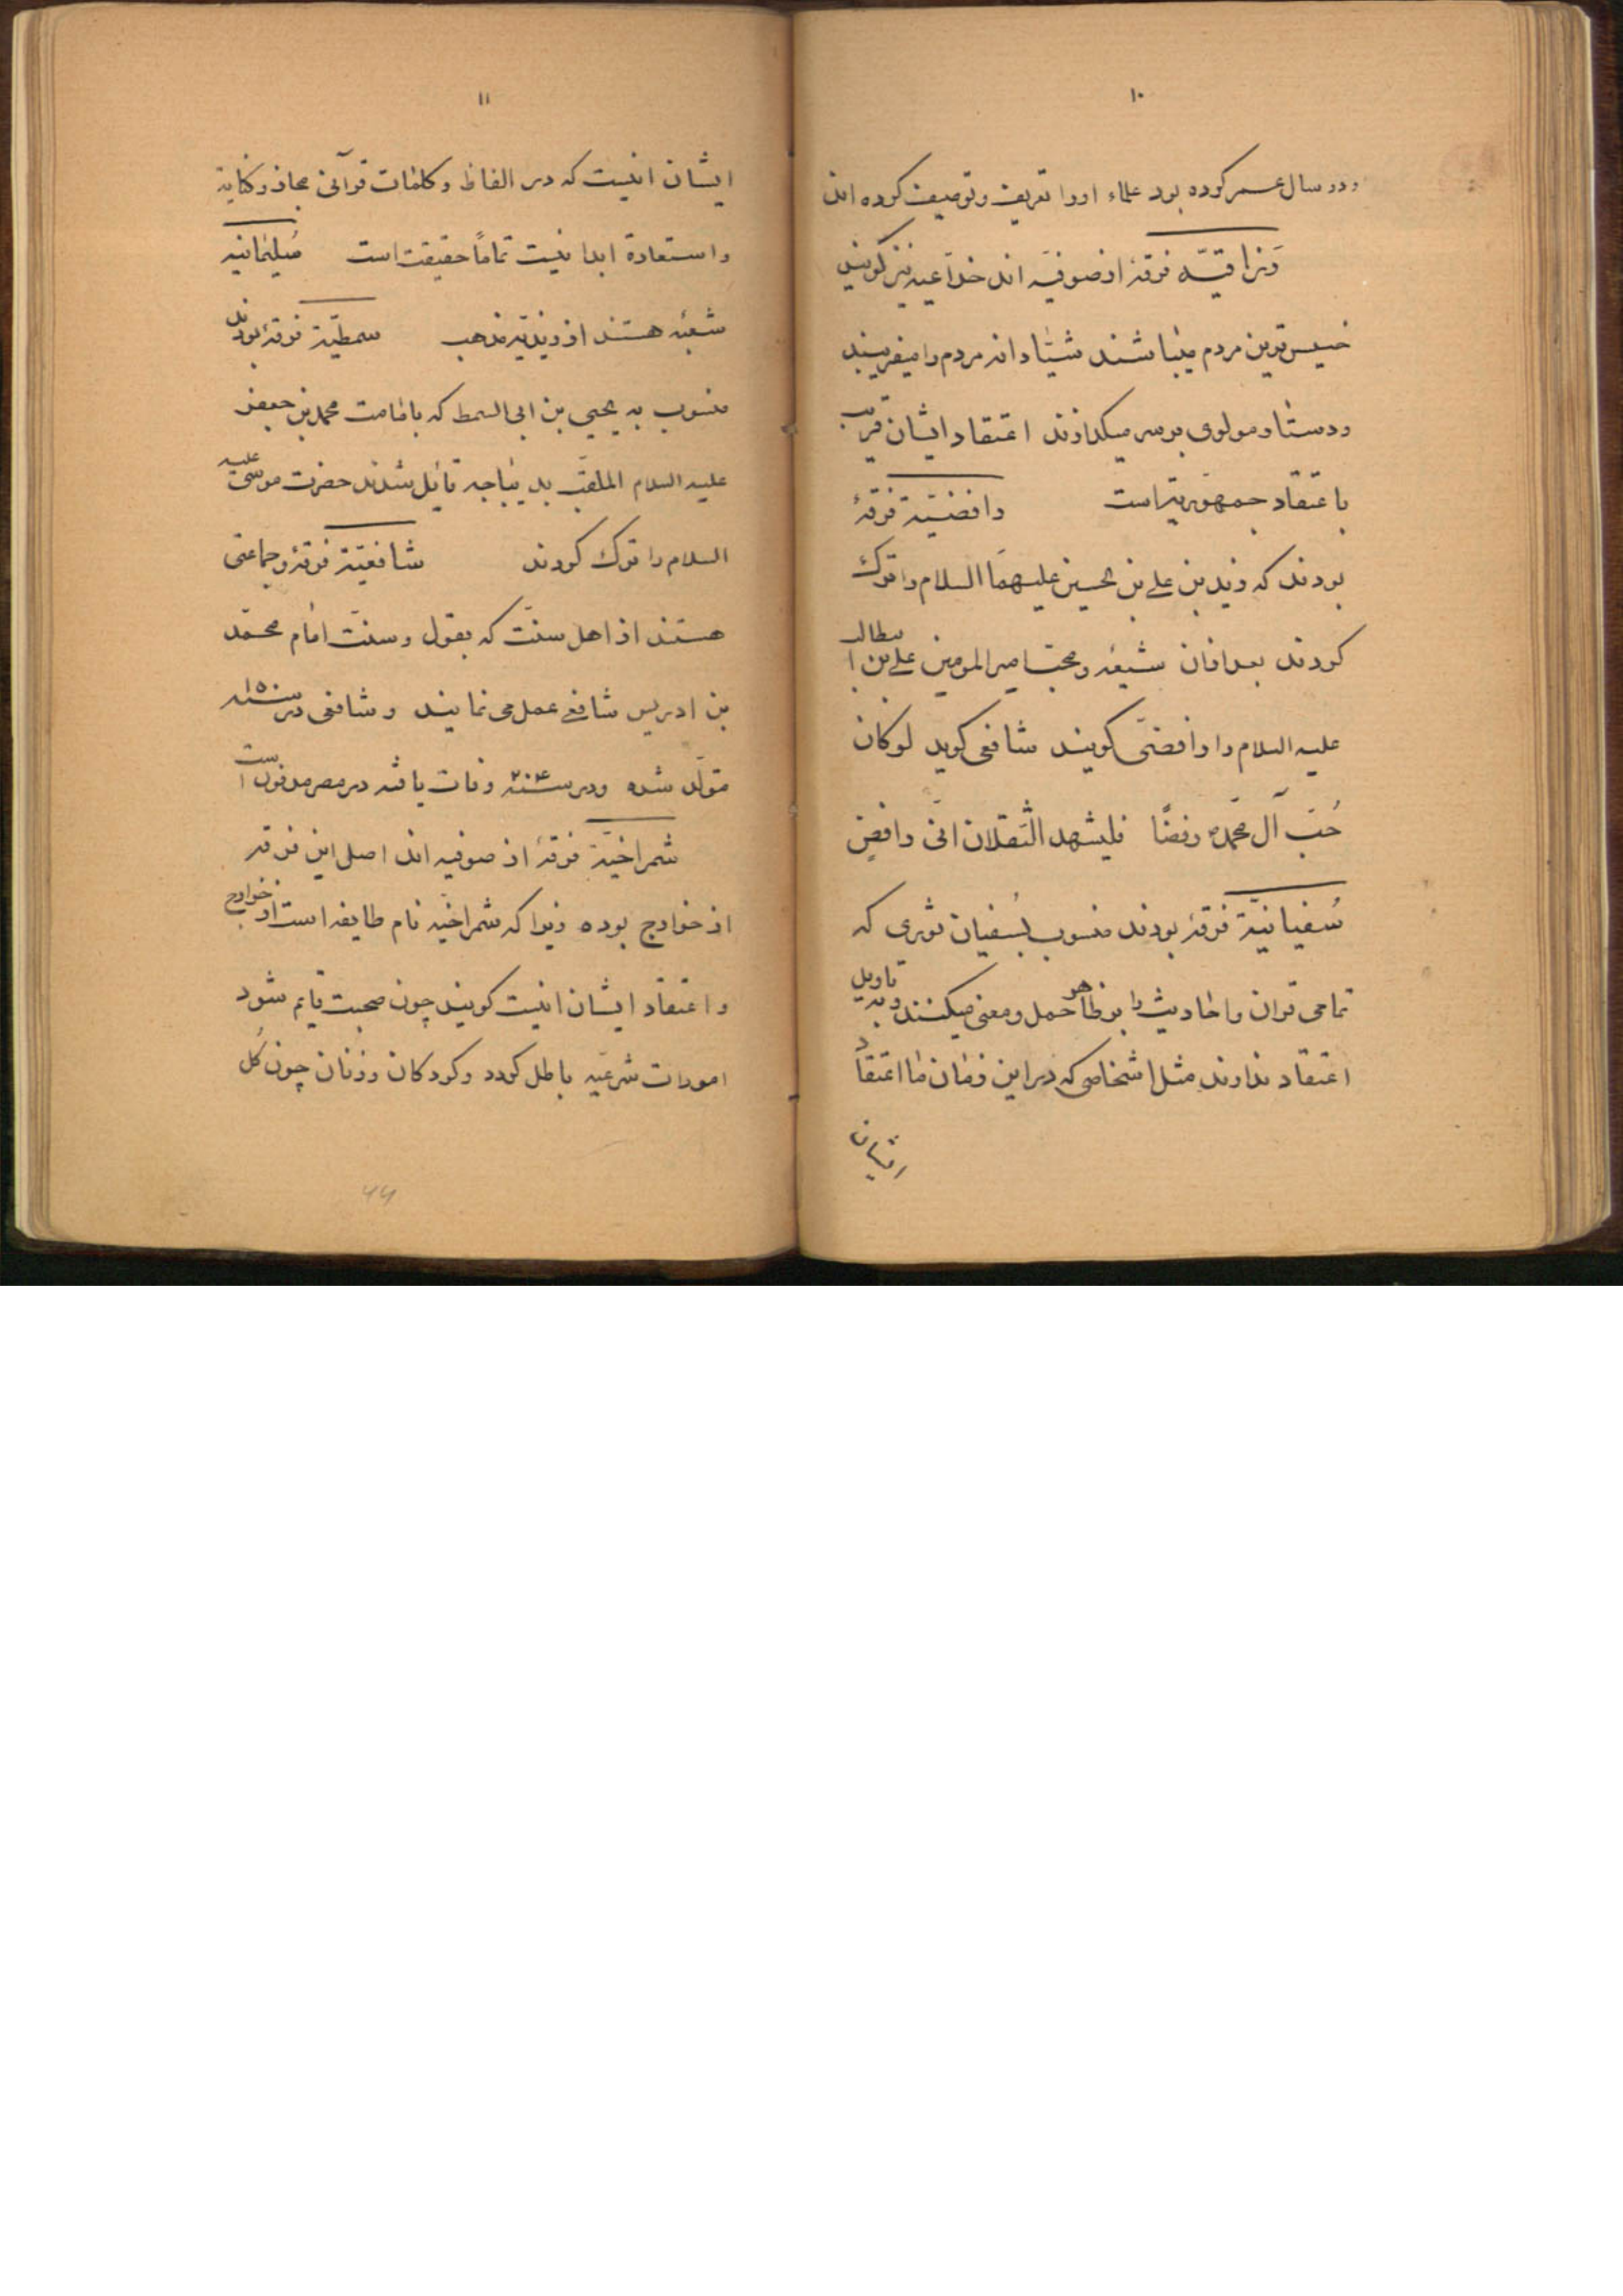 ۱۰
ودو سال عمر کرده بود علماء اورا تعریف و توصیف کرده اند
وزاقیّه فرقهٔ از صوفیّه اند خدّاعیه نیز گویند
خسیس ترین مردم میباشند شیّادانه مردم را میفریبند
ودستار مولوی بر سر میگذارند اعتقاد ایشان قریب
باعتقاد جمهوریّه است رافضیّة فرقهٔ
بودند که زید بن علی بن الحسین علیهما السلام را ترک
کردند بعد از آن شیعه و محبّ امیر المومنین علی بن ابیطالب
علیه السلام را رافضی گویند شافعی گوید لو کان
حُبّ آل محمّدٍ رفضًا فلیشهد الثّقلان انّی رافضی
سُفیانیّة فرقهٔ بودند منسوب بسُفیان ثوری که
تمامی قران و احادیث را بر ظاهر حمل و معنی میکنند و به تاویل
اعتقاد ندارند مثل اشخاصی که در این زمان ما اعتقاد
ایشان
۱۱
ایشان اینست که در الفاظ و کلمات قرآنی مجاز و کنایة
واستعارة ابدا نیست تماماً حقیقت است سُلیمانیه
شعبهٔ هستند از زیدیّه مذهب سمطیّة فرقهٔ بودند
منسوب به یحیی بن ابی السمط که بامامت محمد بن جعفر
علیه السلام الملقّب بدیباجه قایل شدند حضرت موسی علیه
السلام را ترک کردند شافعیّة فرقهٔ و جماعتی
هستند از اهل سنّت که بقول و سنّت امام محمّد
بن ادریس شافعی عمل می نمایند و شافعی در سنه ۱۵۰
متولّد شده ودر سنه ۲۰۴ وفات یافته در مصر مدفون است
شمراخیّة فرقهٔ از صوفیه اند اصل این فرقه
از خوارج بوده زیرا که شمراخیّه نام طایفه است از خوارج
واعتقاد ایشان اینست گویند چون صحبت قایم شود
امورات شرعیّه باطل گردد و کودکان و زنان چون گل
۴۴